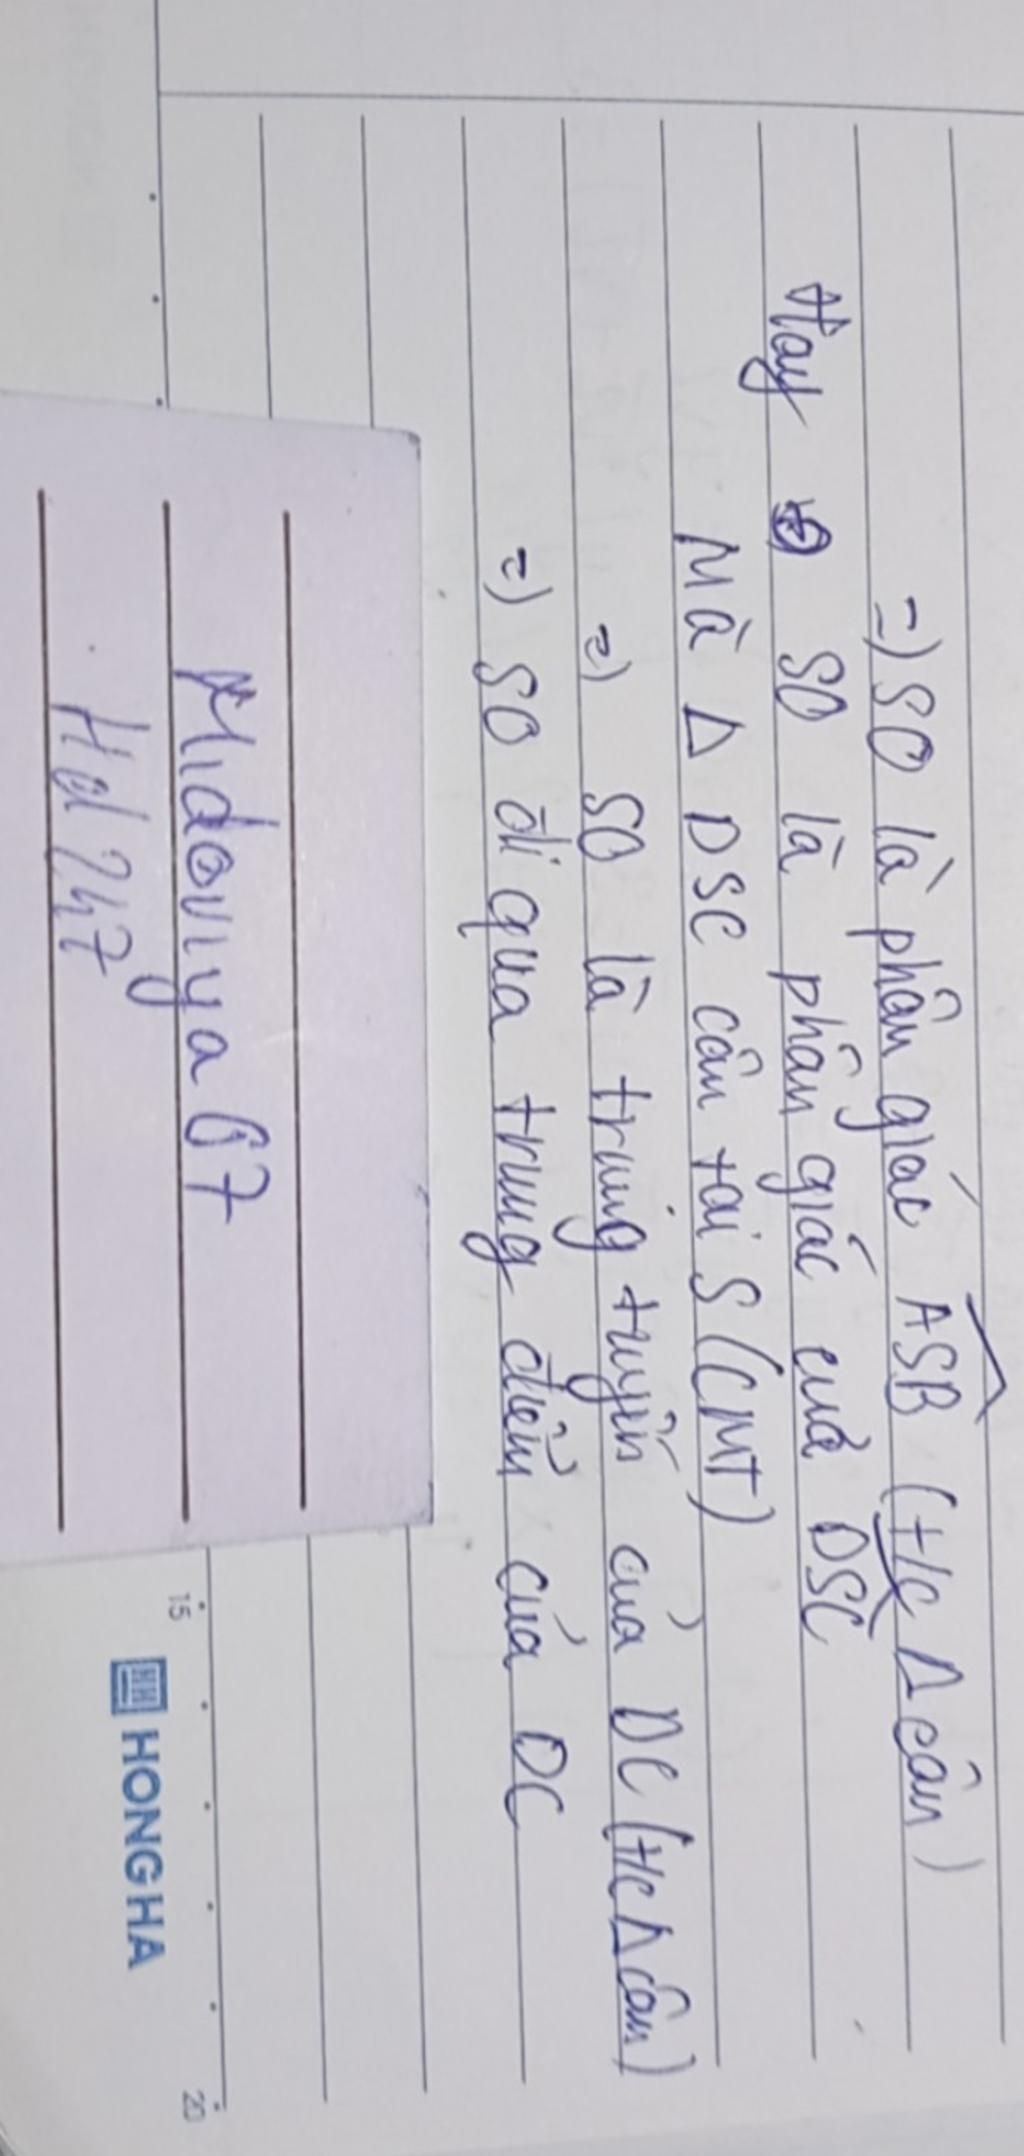 =) SO là phân giác ASB (t/c Δ cân)
Hay SO là phân giác của DSC
Mà Δ DSC cân tại S (CMT)
=) SO là trung tuyến của DC (t/c Δ cân)
=) SO đi qua trung điểm của DC
Midoviya67
Hd247
15
20
HONG HA